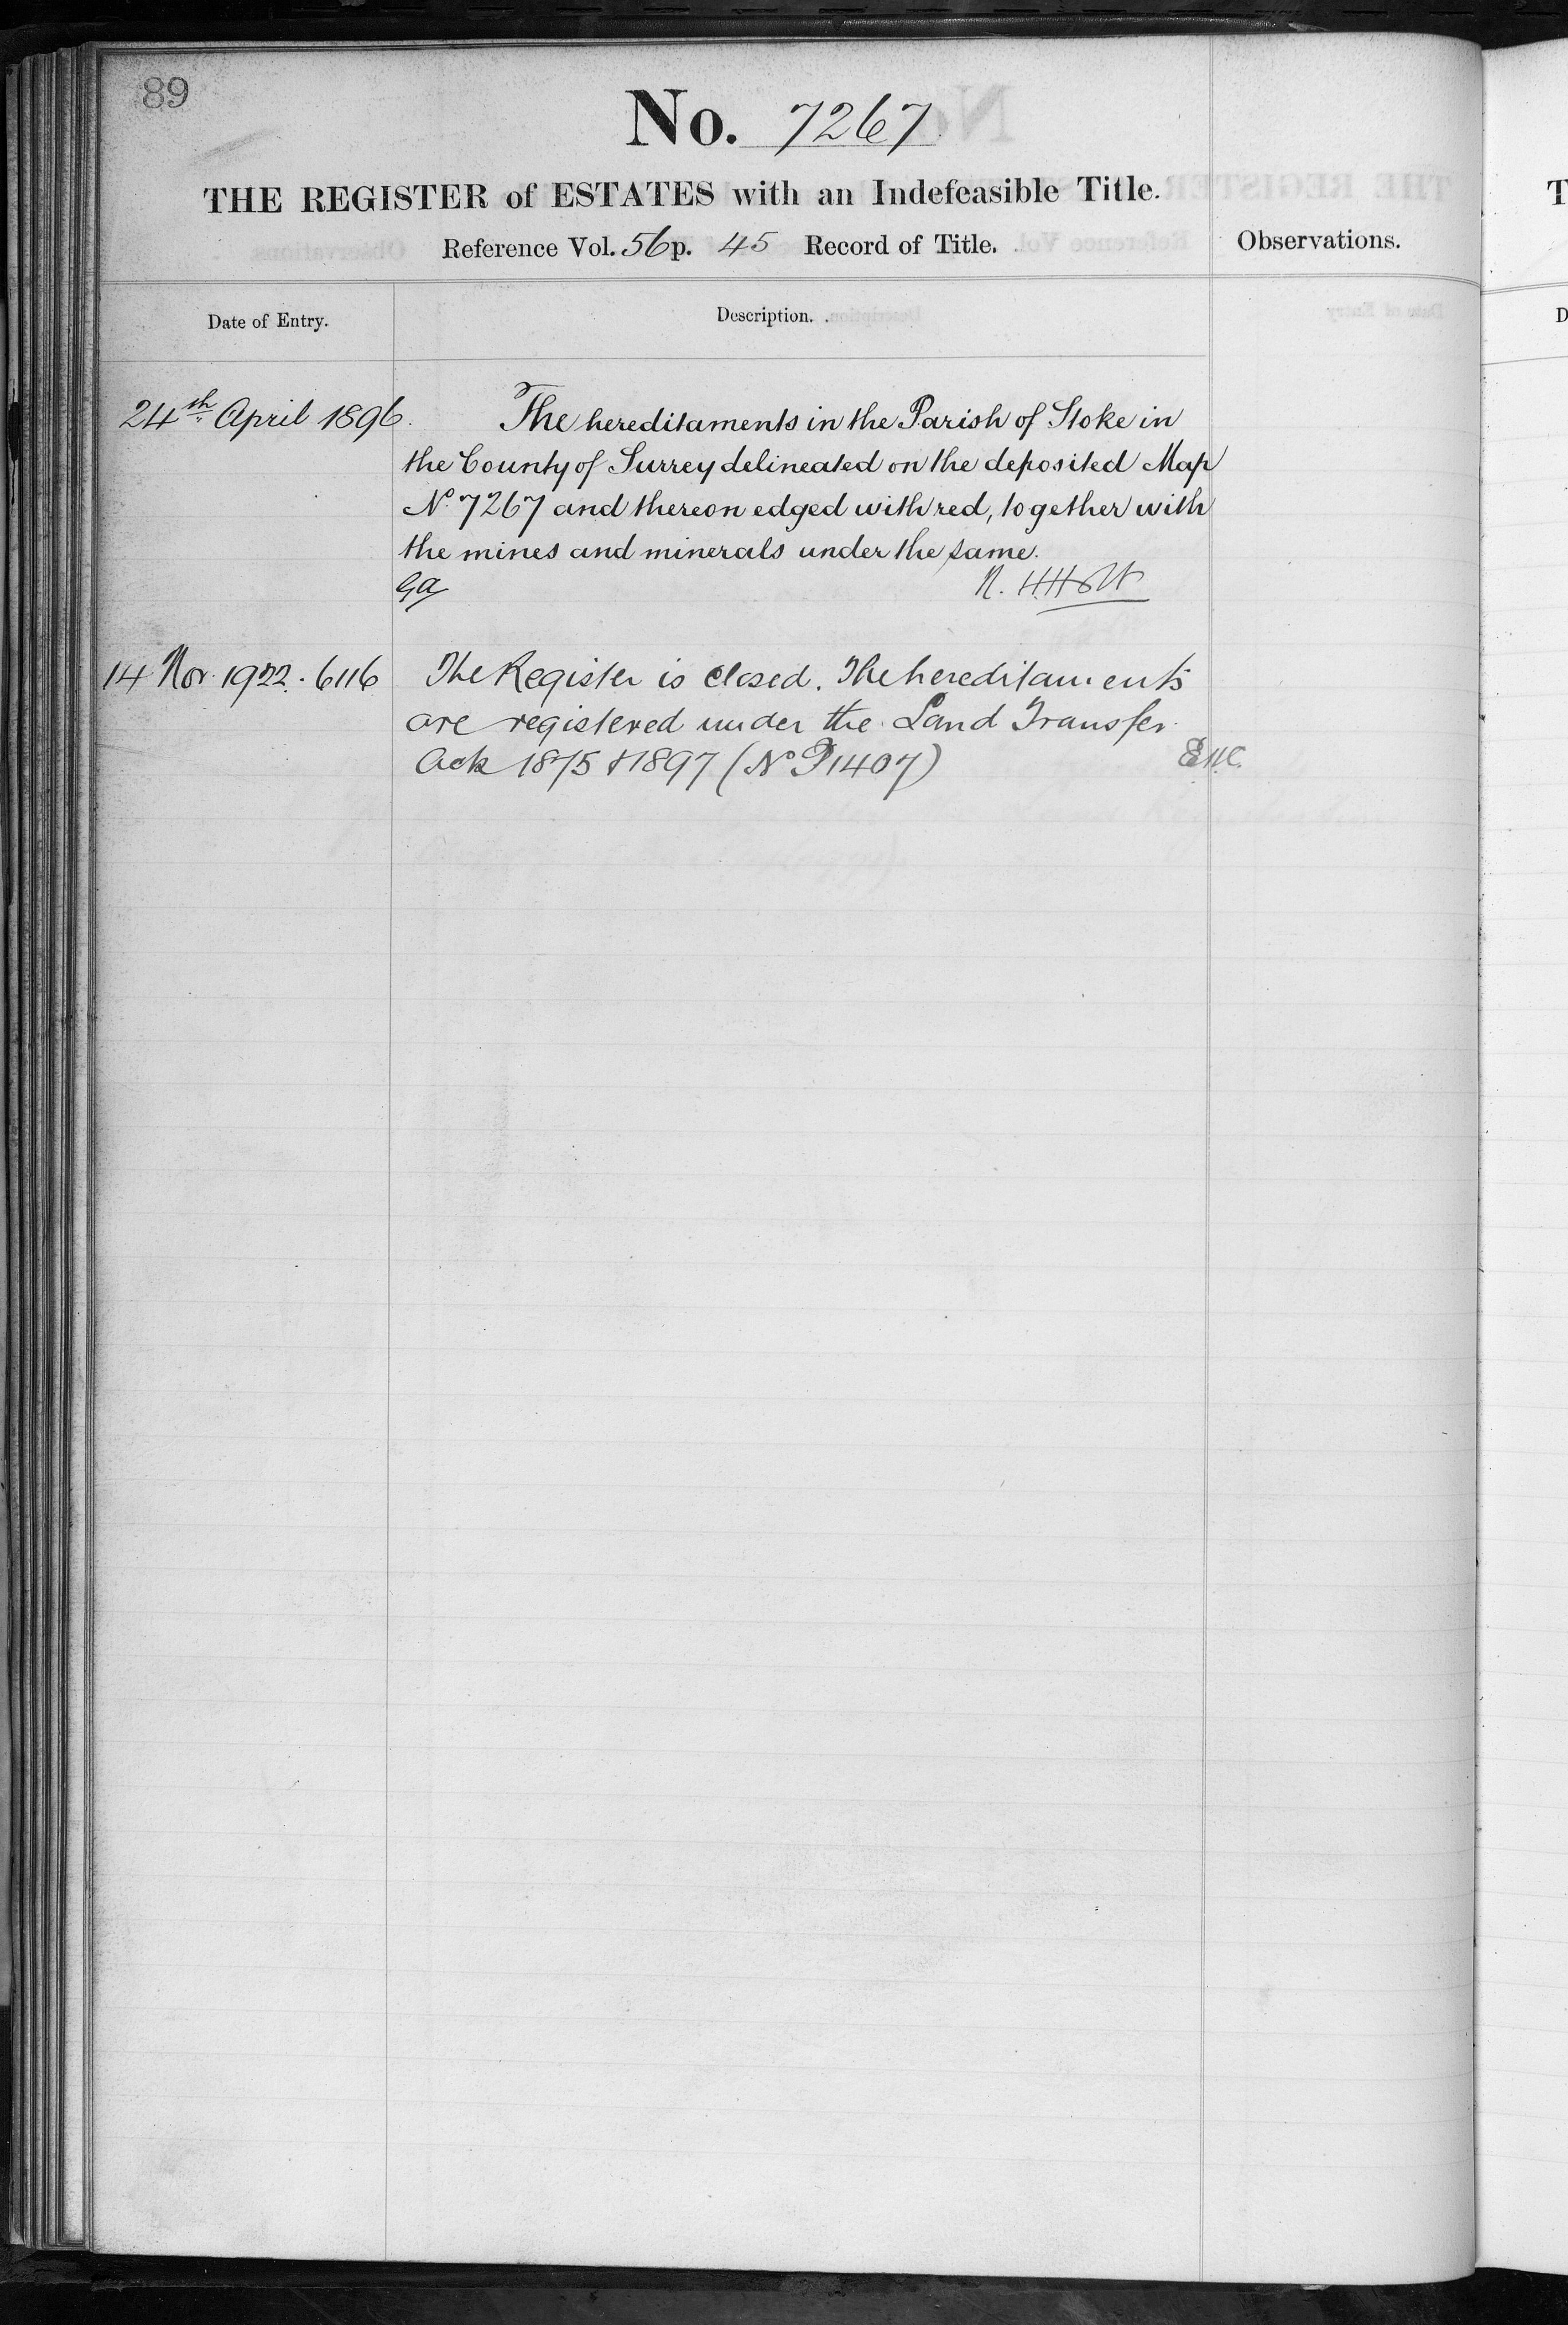 89
No. 7267
THE REGISTER of ESTATES with an Indefeasible Title.
Reference Vol. 56 p. 45 Record of Title.
Observations.
Date of Entry.
Description.
24th April 1896.
The hereditaments in the Parish of Stoke in
the County of Surrey delineated on the deposited Map
No 7267 and thereon edged with red, together with
the mines and minerals under the same.
Ga
14 Nov. 1922. 6116
The Register is closed. The hereditaments
are registered under the Land Transfer
Acts 1875 & 1897 (No P1407)